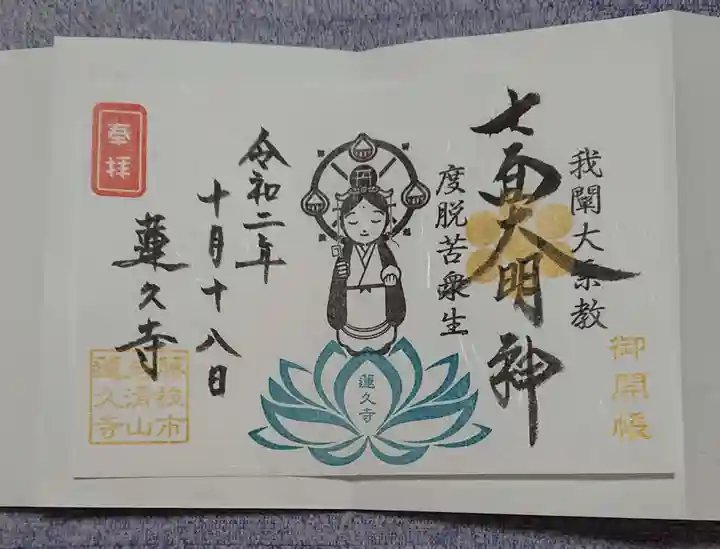 我闡大乗教
七面大明神
度脱苦衆生
御開帳
蓮久寺
令和二年
十月十八日
蓮久寺
奉拝
蓮久寺